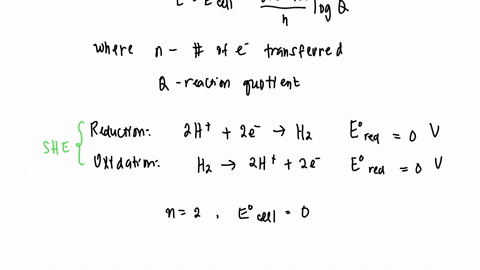 E = E cell log Q
n
where n - # of e⁻ transferred
Q - reaction quotient
SHE
Reduction: 2H⁺ + 2e⁻ → H₂ E°red = 0 V
Oxidation: H₂ → 2H⁺ + 2e⁻ E°red = 0 V
n = 2 , E°cell = 0